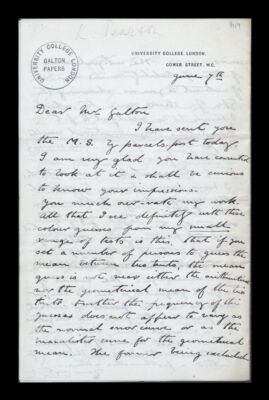 K. Pearson
UNIVERSITY COLLEGE LONDON
GALTON
PAPERS
UNIVERSITY COLLEGE, LONDON.
GOWER STREET, W.C.
June 7th
Dear Mr Galton
I have sent you
the M.S. by parcels-post today.
I am very glad you have consented
to look at it & shall be curious
to know your impressions.
You much over-rate my work.
All that I see definitely with these
colour guesses from my small
range of tests is this, that if you
set a number of persons to guess the
mean between two tints, the mean
guess is not near either the arithmetic
nor the geometrical mean of the two
tints. Further the frequency of the
guesses does not appear to vary as
the normal error curve or as the
macalister curve for the geometrical
mean. The former being excluded